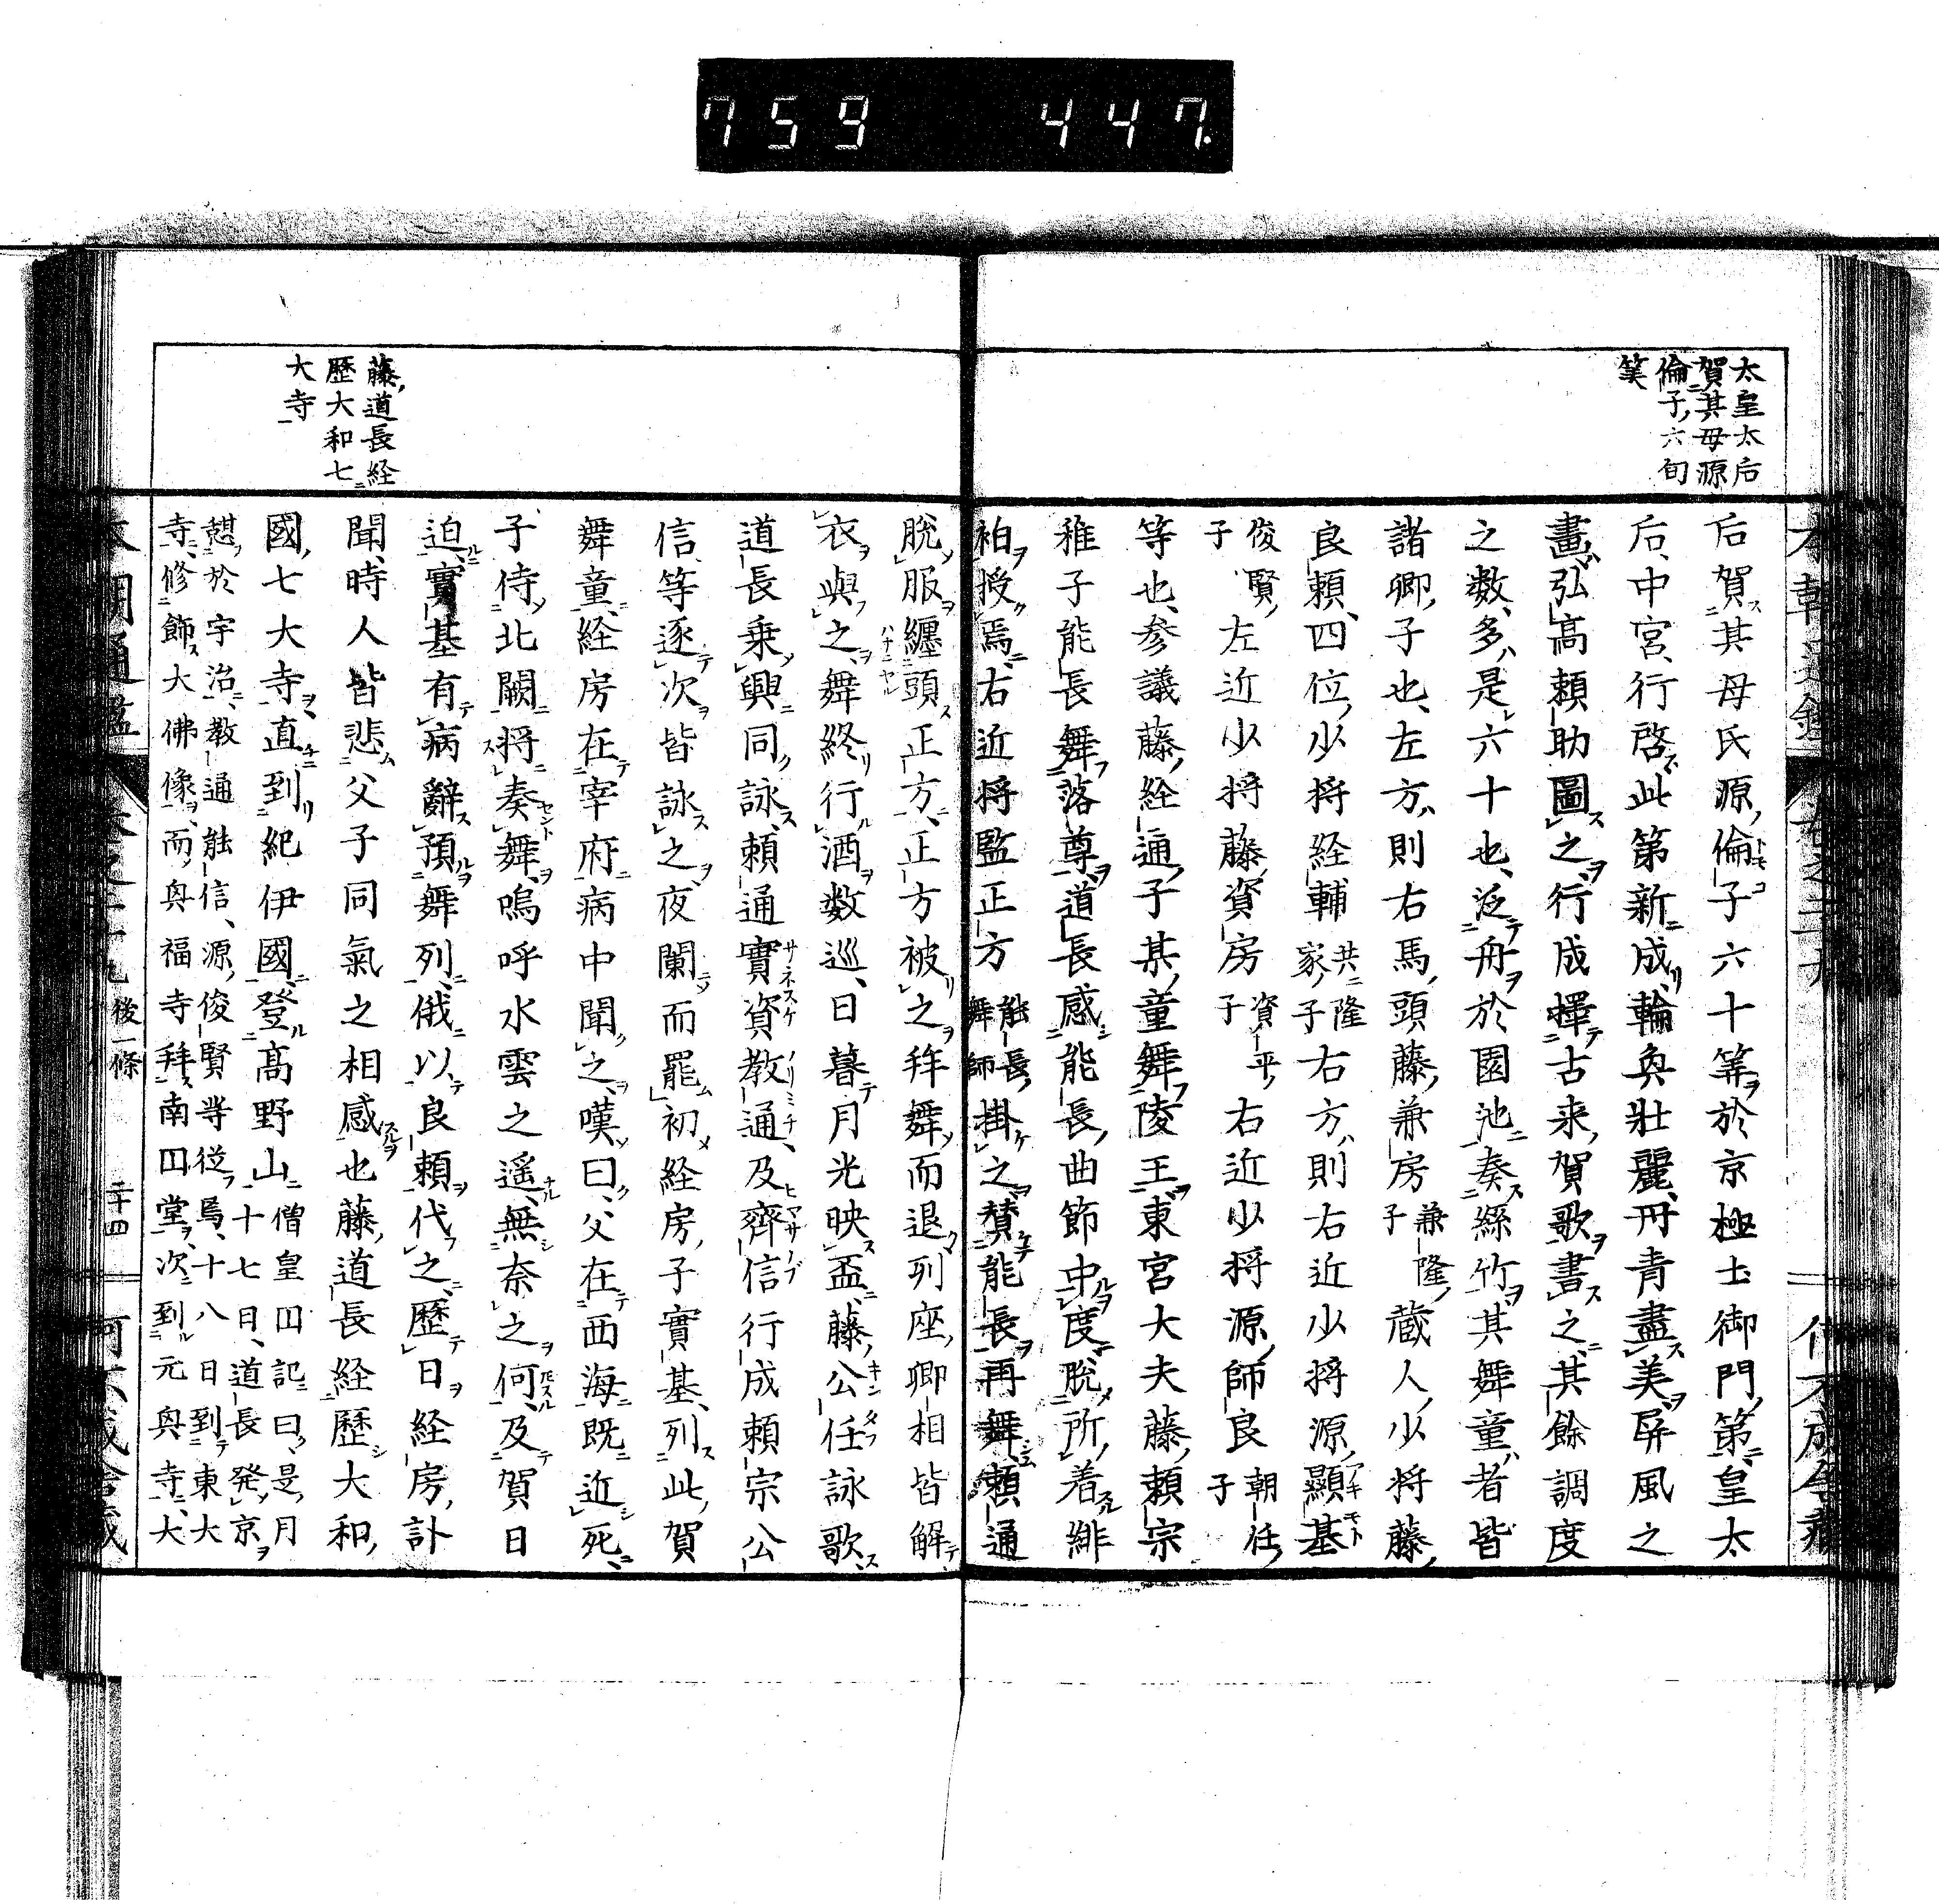 759 447.
太皇太后
賀其母源
倫子六旬
筭
后賀其母氏源倫子六十筭於京極土御門第皇太
后中宮行啓此第新成輪奐壮麗丹青盡美屏風之
畫弘高頼助圖之行成擇古来賀歌書之其餘調度
之數多是六十也泛舟於園池奏絲竹其舞童者皆
諸卿子也左方則右馬頭藤兼房兼隆子蔵人少将藤
良頼四位少将経輔共隆家子右方則右近少将源顯基
俊賢子左近少将藤資房資平子右近少将源師良朝任子
等也参議藤経通子某童舞陵王東宮大夫藤頼宗
稚子能長舞落尊道長感能長曲節中度脱所着緋
袙授焉右近将監正方能長舞師掛之賛能長再舞頼通
脱服纏頭正方正方被之拜舞而退列座卿相皆解
衣與之舞終行酒數巡日暮月光映盃藤公任詠歌
道長乗興同詠頼通實資教通及齊信行成頼宗公
信等逐次皆詠之夜闌而罷初経房子實基列此賀
舞童経房在宰府病中聞之嘆曰父在西海既近死
子侍北闕将奏舞嗚呼水雲之遥無奈之何及賀日
迫實基有病辭預舞列俄以良頼代之歷日経房訃
聞時人皆悲父子同氣之相感也藤道長経歷大和
國七大寺直到紀伊國登髙野山僧皇円記曰是月十七日道長発京
憇於宇治教通能信源俊賢等従焉十八日到東大
寺修飾大佛像而興福寺拜南円堂次到元興寺大
藤道長経
歷大和七
大寺
後一條
二十四